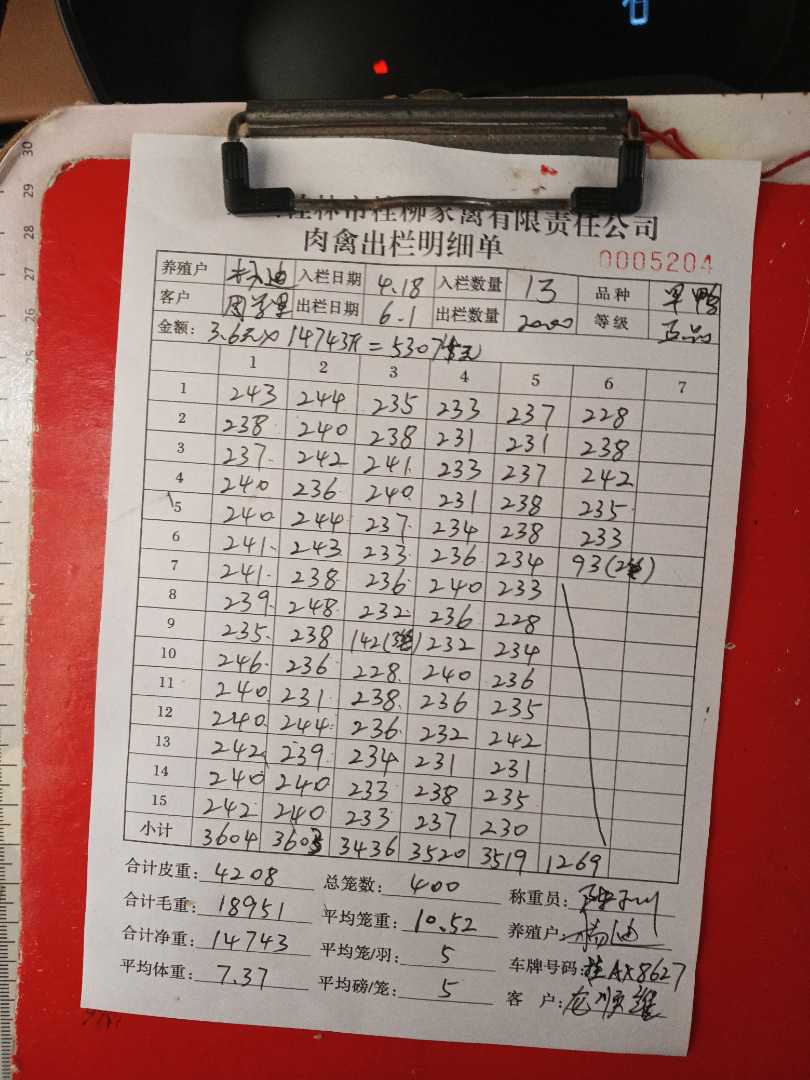 桂林市桂柳家禽有限责任公司
肉禽出栏明细单 0005204
养殖户 杨迪 入栏日期 4.18 入栏数量 品种
客户 出栏日期 6.1 出栏数量 2000 等级 正品
金额: 3.6元× 14743斤 = 53075元
1 2 3 4 5 6 7
1 243 244 235 233 237 228
2 238 240 238 231 231 238
3 237 242 241 233 237 242
4 240 236 240 231 238 235
5 240 244 237 234 238 233
6 241 243 233 236 234 93(2笼)
7 241 238 236 240 233
8 239 248 232 236 228
9 235 238 142(3笼) 232 234
10 246 236 228 240 236
11 240 231 238 236 235
12 240 244 236 232 242
13 242 239 234 231 231
14 240 240 233 238 235
15 242 240 233 237 230
小计 3604 3603 3436 3520 3519 1269
合计皮重: 4208 总笼数: 400 称重员:
合计毛重: 18951 平均笼重: 10.52 养殖户: 杨迪
合计净重: 14743 平均笼/羽: 5 车牌号码: 桂AX8627
平均体重: 7.37 平均磅/笼: 5 客 户:
30
29
28
27
26
25